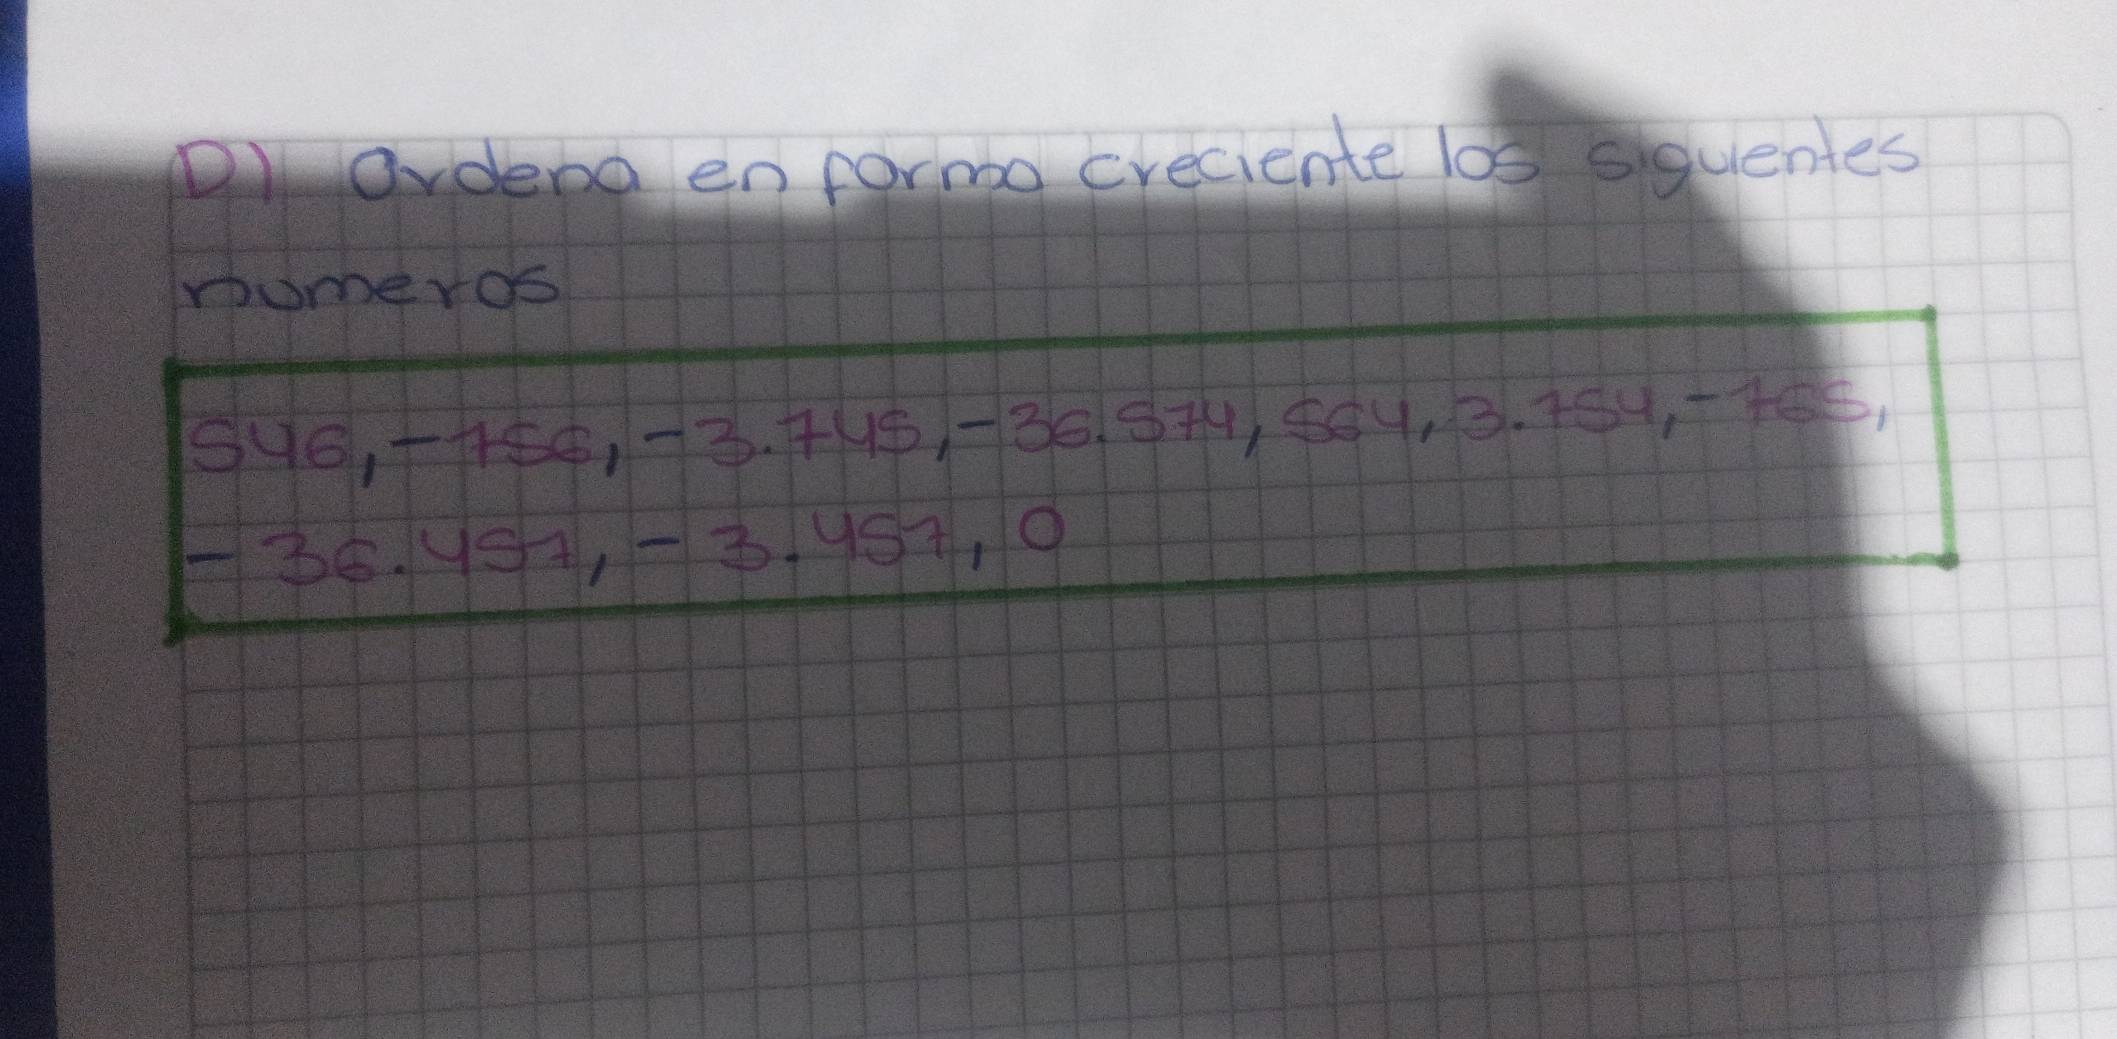 D) Ordena en forma creciente los siguientes
numeros
546, -756, -3.745, -36.574, 564, 3.754, -765,
- 36.457, - 3.457, 0